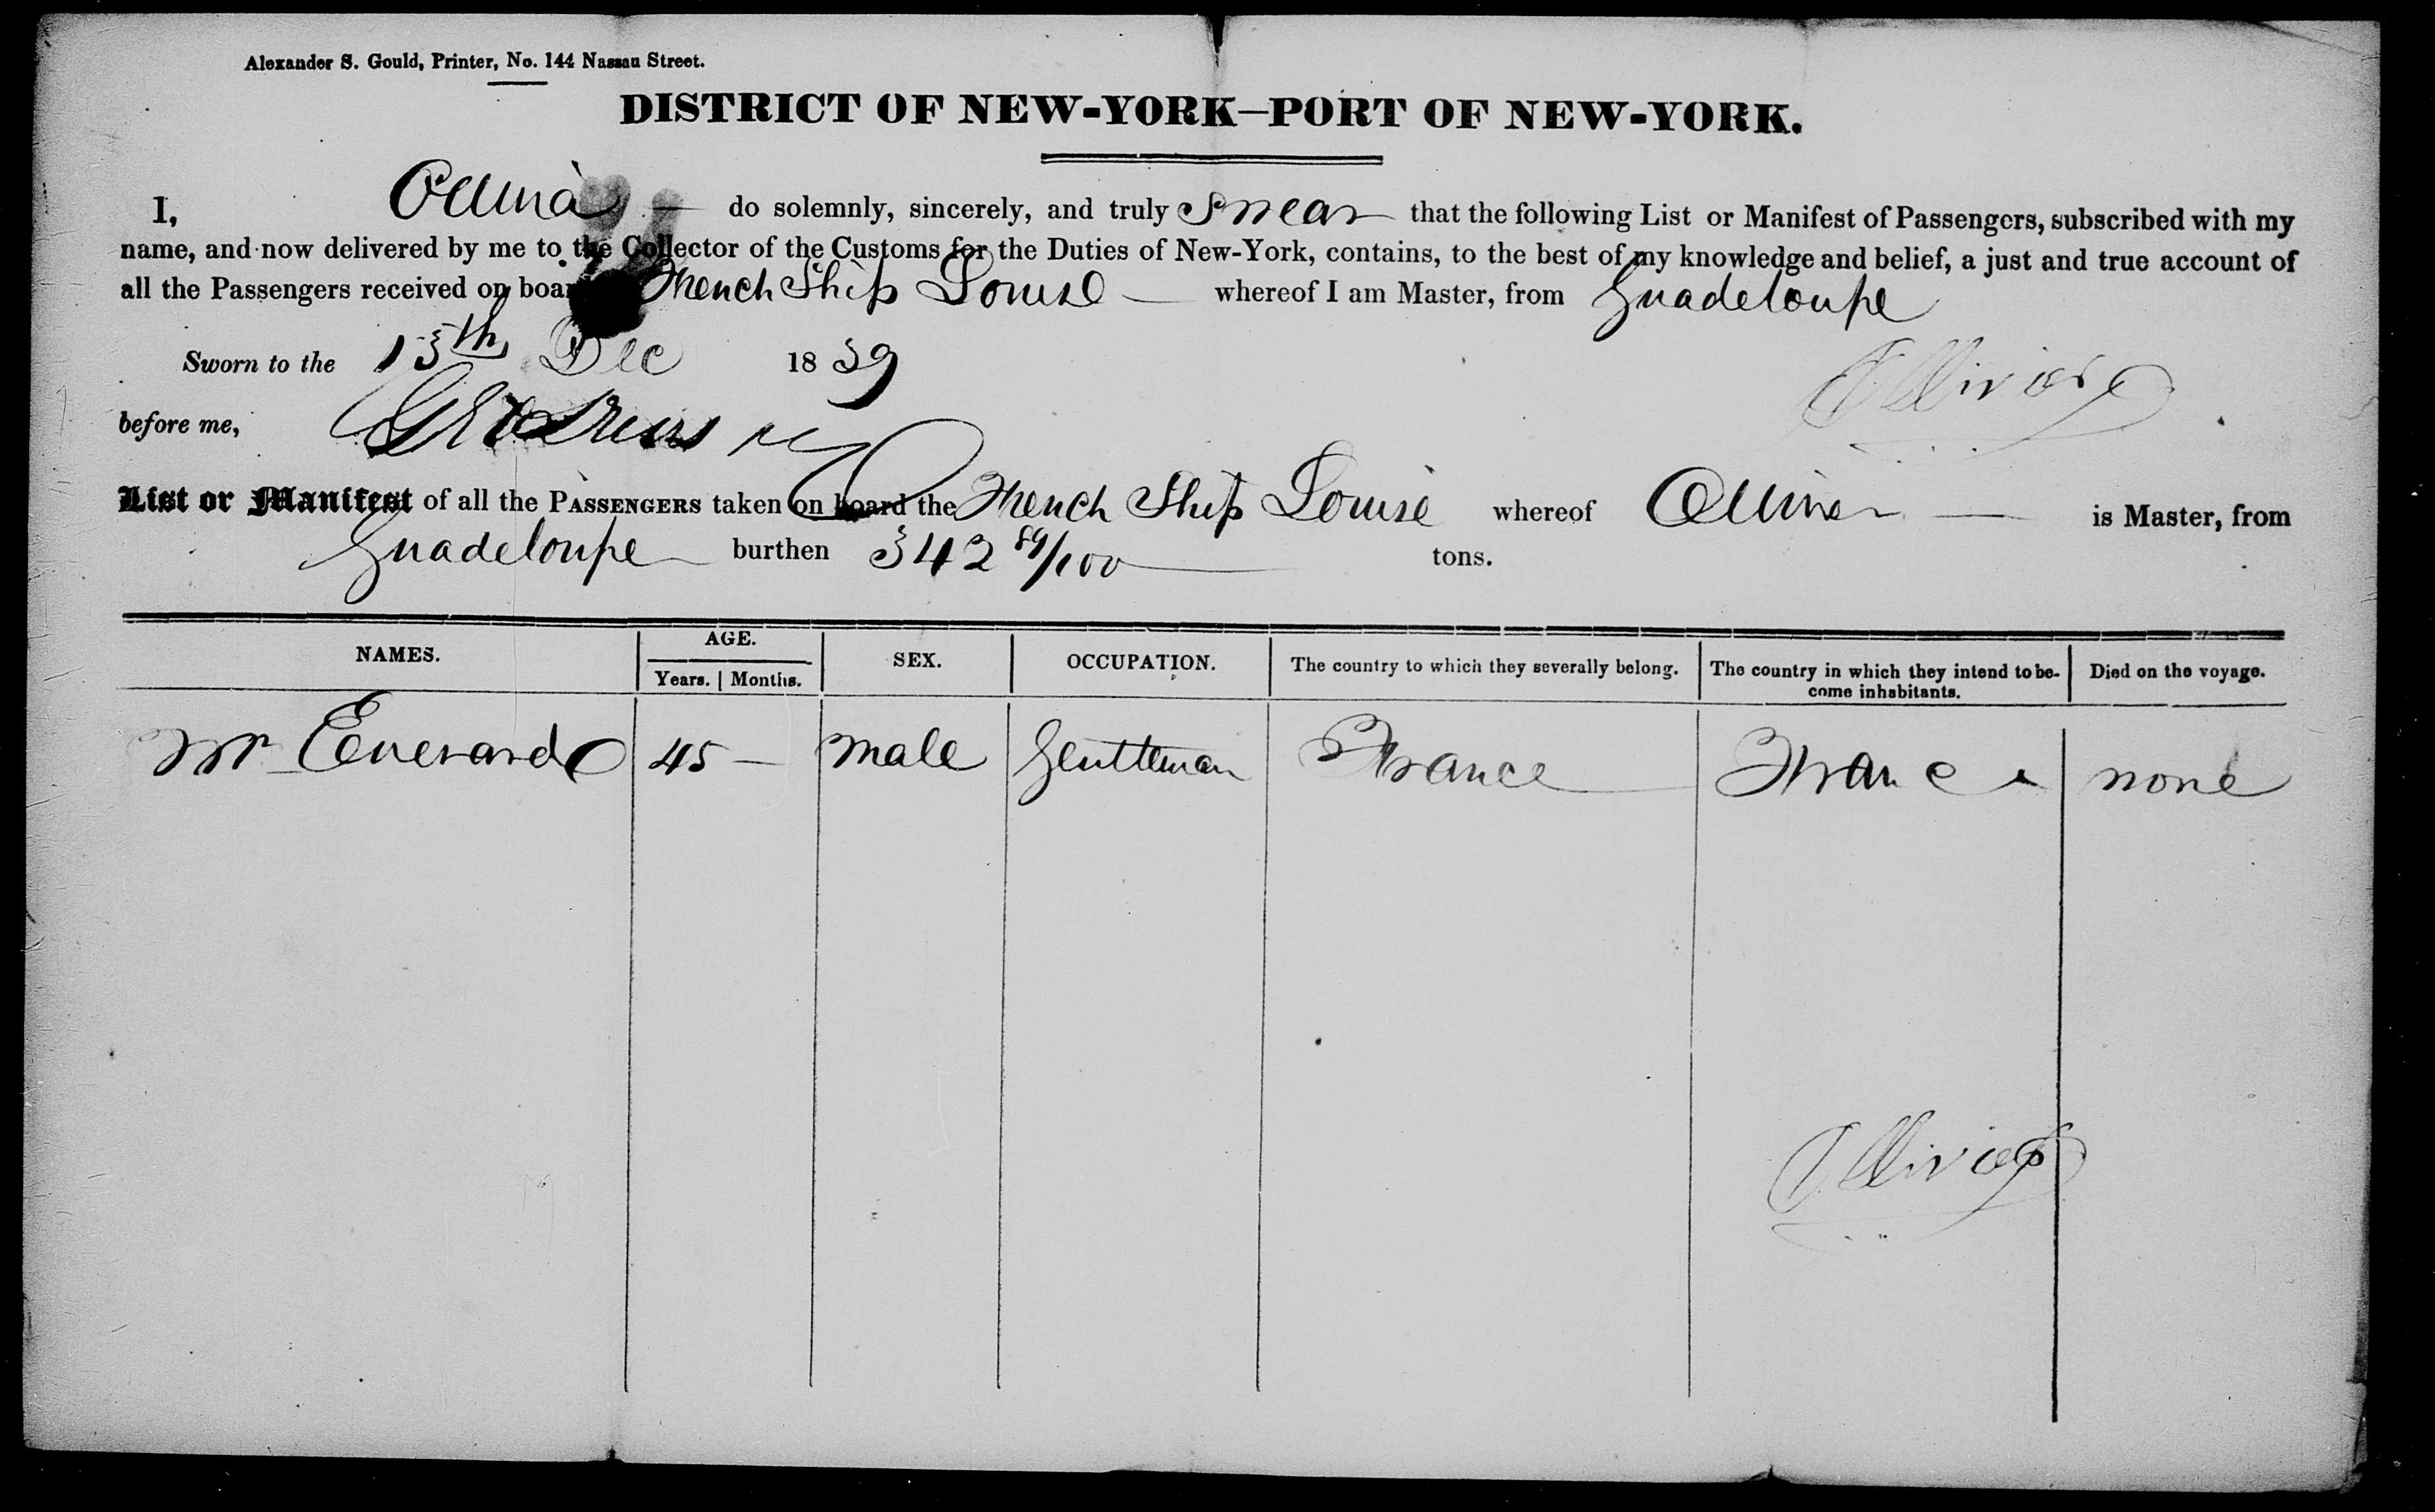 Alexander S. Gould, Printer, No. 144 Nassau Street.
DISTRICT OF NEW-YORK—PORT OF NEW-YORK.
I, Ollivier — do solemnly, sincerely, and truly swear that the following List or Manifest of Passengers, subscribed with my
name, and now delivered by me to the Collector of the Customs for the Duties of New-York, contains, to the best of my knowledge and belief, a just and true account of
all the Passengers received on board French Ship Louise — whereof I am Master, from Guadeloupe
Sworn to the 13th Dec 1839
Ollivier
before me,
List or Manifest of all the PASSENGERS taken on board the French Ship Louise whereof Ollivier — is Master, from
Guadeloupe burthen 342 89/100 tons.
NAMES. AGE. SEX. OCCUPATION. The country to which they severally belong. The country in which they intend to be- Died on the voyage.
Years. Months. come inhabitants.
Mr Everard 45 — male Gentleman France France none
Ollivier